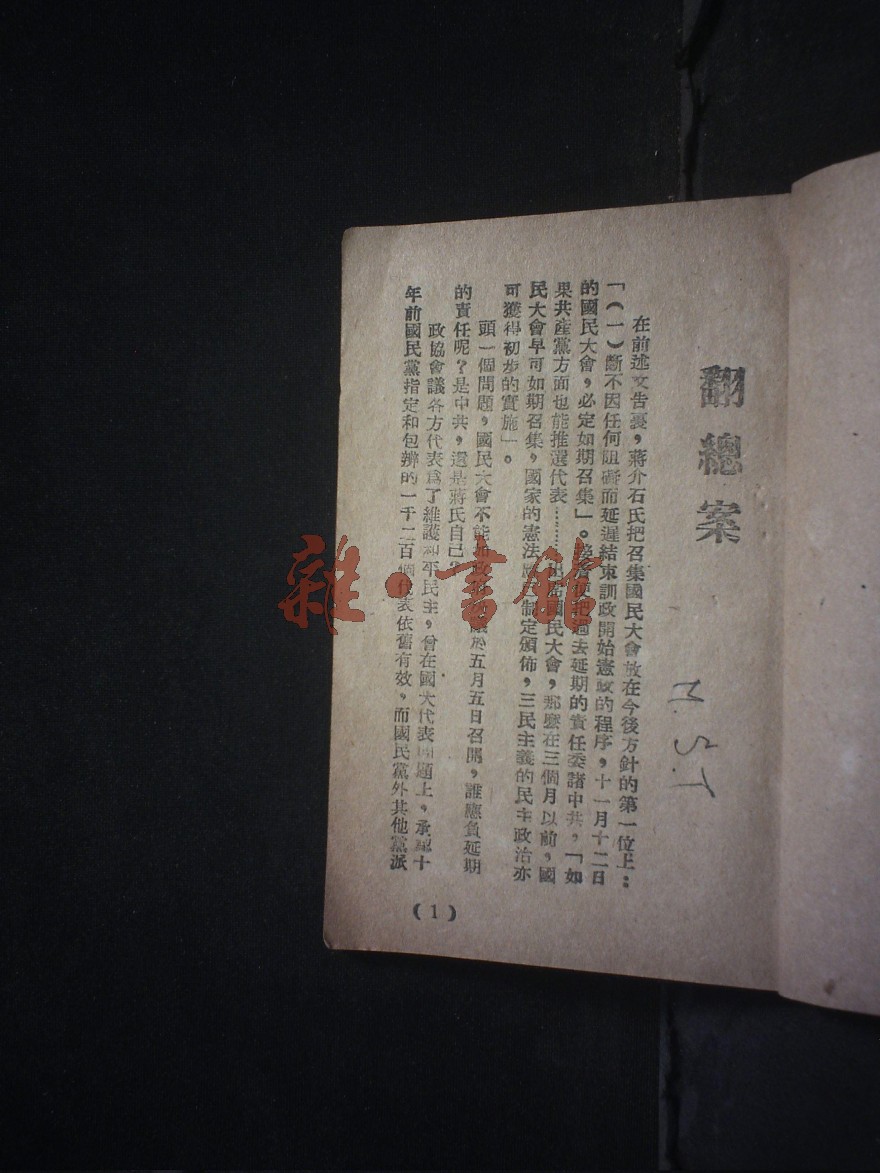 翻總案
M.S.T
在前述文告裏，蔣介石氏把召集國民大會放在今後方針的第一位上：
「（一）斷不因任何阻礙而延遲結束訓政開始憲政的程序，十一月十二日
的國民大會，必定如期召集」。接着便把過去延期的責任委諸中共，「如
果共產黨方面也能推選代表………出席國民大會，那麽在三個月以前，國
民大會早可如期召集，國家的憲法應已制定頒佈，三民主義的民主政治亦
可獲得初步的實施」。
頭一個問題，國民大會不能如政協決議於五月五日召開，誰應負延期
的責任呢？是中共，還是蔣氏自己？
政協會議各方代表爲了維護和平民主，曾在國大代表問題上，承認十
年前國民黨指定和包辦的一千二百個代表依舊有效，而國民黨外其他黨派
（1）
雜·書館